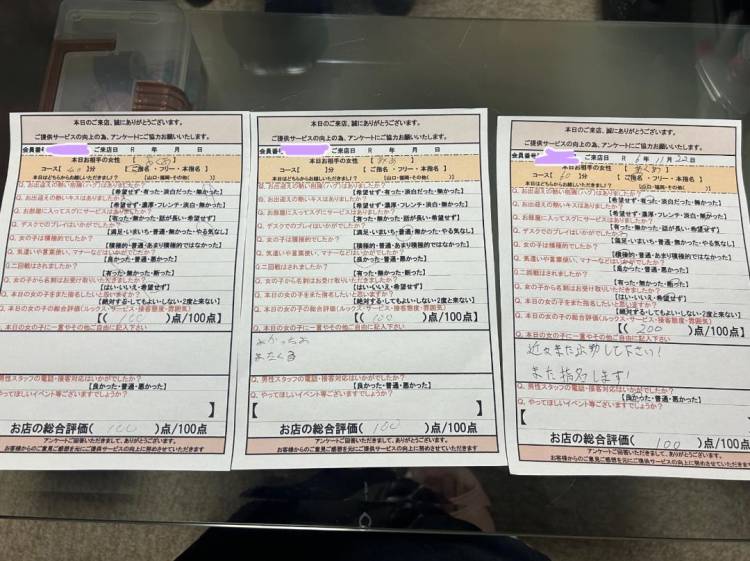 本日のご来店、誠にありがとうございます。
ご提供サービスの向上の為、アンケートにご協力お願いいたします。
会員番号 ご来店日 R 年 月 日
本日お相手の女性
コース( 60 )分 【ご指名・フリー・本指名】
本日はどちらからお越しいただきましたか?
Q. お出迎えの熱い抱擁(ハグ)はありましたか?
【希望せず・有った・淡白だった・無かった】
Q. お出迎えの熱いキスはありましたか?
【希望せず・濃厚・フレンチ・淡白・無かった】
Q. お部屋に入ってスグにサービスはありましたか?
【有った・無かった・話が長い・希望せず】
Q. デスクでのプレイはいかがでしたか?
【満足・いまいち・普通・無かった・やる気なし】
Q. 女の子は積極的でしたか?
【積極的・普通・あまり積極的ではなかった】
Q. 気遣いや言葉使い、マナーなどはいかがでしたか?
【良かった・普通・悪かった】
Q. 二回戦はされましたか?
【有った・無かった・断った】
Q. 女の子から名刺はお受け取りいただきましたか?
【はい・いいえ・希望せず】
Q. 本日の女の子をまた指名したいと思いますか?
【絶対する・してもよい・しない・2度と来ない】
Q. 本日の女の子の総合評価(ルックス・サービス・接客態度・雰囲気)
【( 100 )点/100点】
Q. 本日の女の子に一言やその他ご自由に記入下さい
Q. 男性スタッフの電話・接客対応はいかがでしたか?
【良かった・普通・悪かった】
Q. やってほしいイベント等ございますでしょうか?
お店の総合評価( 100 )点/100点
アンケートご回答いただきまして、ありがとうございます。
お客様からのご意見ご感想を元にご提供サービスの向上に努めさせていただきます
本日のご来店、誠にありがとうございます。
ご提供サービスの向上の為、アンケートにご協力お願いいたします。
会員番号 ご来店日 R 年 月 日
本日お相手の女性
コース( )分 【ご指名・フリー・本指名】
本日はどちらからお越しいただきましたか? 【山口・福岡・その他( )】
Q. お出迎えの熱い抱擁(ハグ)はありましたか?
【希望せず・有った・淡白だった・無かった】
Q. お出迎えの熱いキスはありましたか?
【希望せず・濃厚・フレンチ・淡白・無かった】
Q. お部屋に入ってスグにサービスはありましたか?
【有った・無かった・話が長い・希望せず】
Q. デスクでのプレイはいかがでしたか?
【満足・いまいち・普通・無かった・やる気なし】
Q. 女の子は積極的でしたか?
【積極的・普通・あまり積極的ではなかった】
Q. 気遣いや言葉使い、マナーなどはいかがでしたか?
【良かった・普通・悪かった】
Q. 二回戦はされましたか?
【有った・無かった・断った】
Q. 女の子から名刺はお受け取りいただきましたか?
【はい・いいえ・希望せず】
Q. 本日の女の子をまた指名したいと思いますか?
【絶対する・してもよい・しない・2度と来ない】
Q. 本日の女の子の総合評価(ルックス・サービス・接客態度・雰囲気)
【( 100 )点/100点】
Q. 本日の女の子に一言やその他ご自由に記入下さい
よかったよ
またくる
Q. 男性スタッフの電話・接客対応はいかがでしたか?
【良かった・普通・悪かった】
Q. やってほしいイベント等ございますでしょうか?
お店の総合評価( 100 )点/100点
アンケートご回答いただきまして、ありがとうございます。
お客様からのご意見ご感想を元にご提供サービスの向上に努めさせていただきます
本日のご来店、誠にありがとうございます。
ご提供サービスの向上の為、アンケートにご協力お願いいたします。
会員番号 ご来店日 R 6 年 11 月 22 日
本日お相手の女性
コース( 60 )分 【ご指名・フリー・本指名】
本日はどちらからお越しいただきましたか? 【山口・福岡・その他( )】
Q. お出迎えの熱い抱擁(ハグ)はありましたか?
【希望せず・有った・淡白だった・無かった】
Q. お出迎えの熱いキスはありましたか?
【希望せず・濃厚・フレンチ・淡白・無かった】
Q. お部屋に入ってスグにサービスはありましたか?
【有った・無かった・話が長い・希望せず】
Q. デスクでのプレイはいかがでしたか?
【満足・いまいち・普通・無かった・やる気なし】
Q. 女の子は積極的でしたか?
【積極的・普通・あまり積極的ではなかった】
Q. 気遣いや言葉使い、マナーなどはいかがでしたか?
【良かった・普通・悪かった】
Q. 二回戦はされましたか?
【有った・無かった・断った】
Q. 女の子から名刺はお受け取りいただきましたか?
【はい・いいえ・希望せず】
Q. 本日の女の子をまた指名したいと思いますか?
【絶対する・してもよい・しない・2度と来ない】
Q. 本日の女の子の総合評価(ルックス・サービス・接客態度・雰囲気)
【( 200 )点/100点】
Q. 本日の女の子に一言やその他ご自由に記入下さい
近々また出勤して下さい!
また指名します!
Q. 男性スタッフの電話・接客対応はいかがでしたか?
【良かった・普通・悪かった】
Q. やってほしいイベント等ございますでしょうか?
お店の総合評価( 100 )点/100点
アンケートご回答いただきまして、ありがとうございます。
お客様からのご意見ご感想を元にご提供サービスの向上に努めさせていただきます